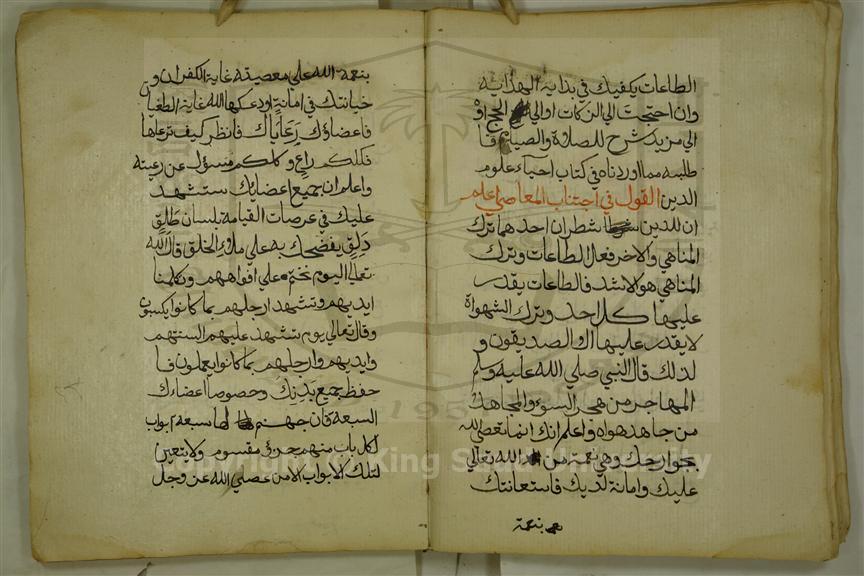 الطاعات يكفيك في بداية الهداية
وان احتجت الي الزكات اوالي الحج او
الي مزيد شرح للصلاة والصيام فا
طلبه مما اوردناه في كتاب احياء علوم
الدين القول في اجتناب المعاصي اعلم
ان للدين شطران احدهما ترك
المناهي والاخر فعل الطاعات وترك
المناهي هو الاشد فالطاعات يقدر
عليها كل احد وترك الشهواة
لا يقدر عليها الا الصديقون و
لذلك قال النبي صلي الله عليه وسلم
المهاجر من هجر السوء والمجاهد
من جاهد هواه واعلم انك انما تعصي الله
بجوارحك وهي نعمة من الله تعالي
عليك وامانة لديك فاستعانتك
بنعمة
بنعمة الله علي معصيته غاية الكفران و
خيانتك في امانة اودعكها الله غاية الطغيان
فاعضاؤك رعاياك فانظر كيف ترعاها
فكلكم راع وكلكم مسؤل عن رعيته
واعلم ان جميع اعضايك ستشهد
عليك في عرصات القيامة بلسان طالق
دلق يفضحك به علي ملاء الخلق قال الله
تعالي اليوم نختم علي افواههم وتكلمنا
ايديهم وتشهد ارجلهم بما كانوا يكسبون
وقال تعالي يوم تشهد عليهم السنتهم
وايديهم وارجلهم بما كانوا يعملون فا
حفظ جميع بدنك وخصوصا اعضاءك
السبعة فان جهنم لها سبعة ابواب
لكل باب منهم جزء مقسوم ولا يتعين
لتلك الابواب الا من عصي الله عز وجل